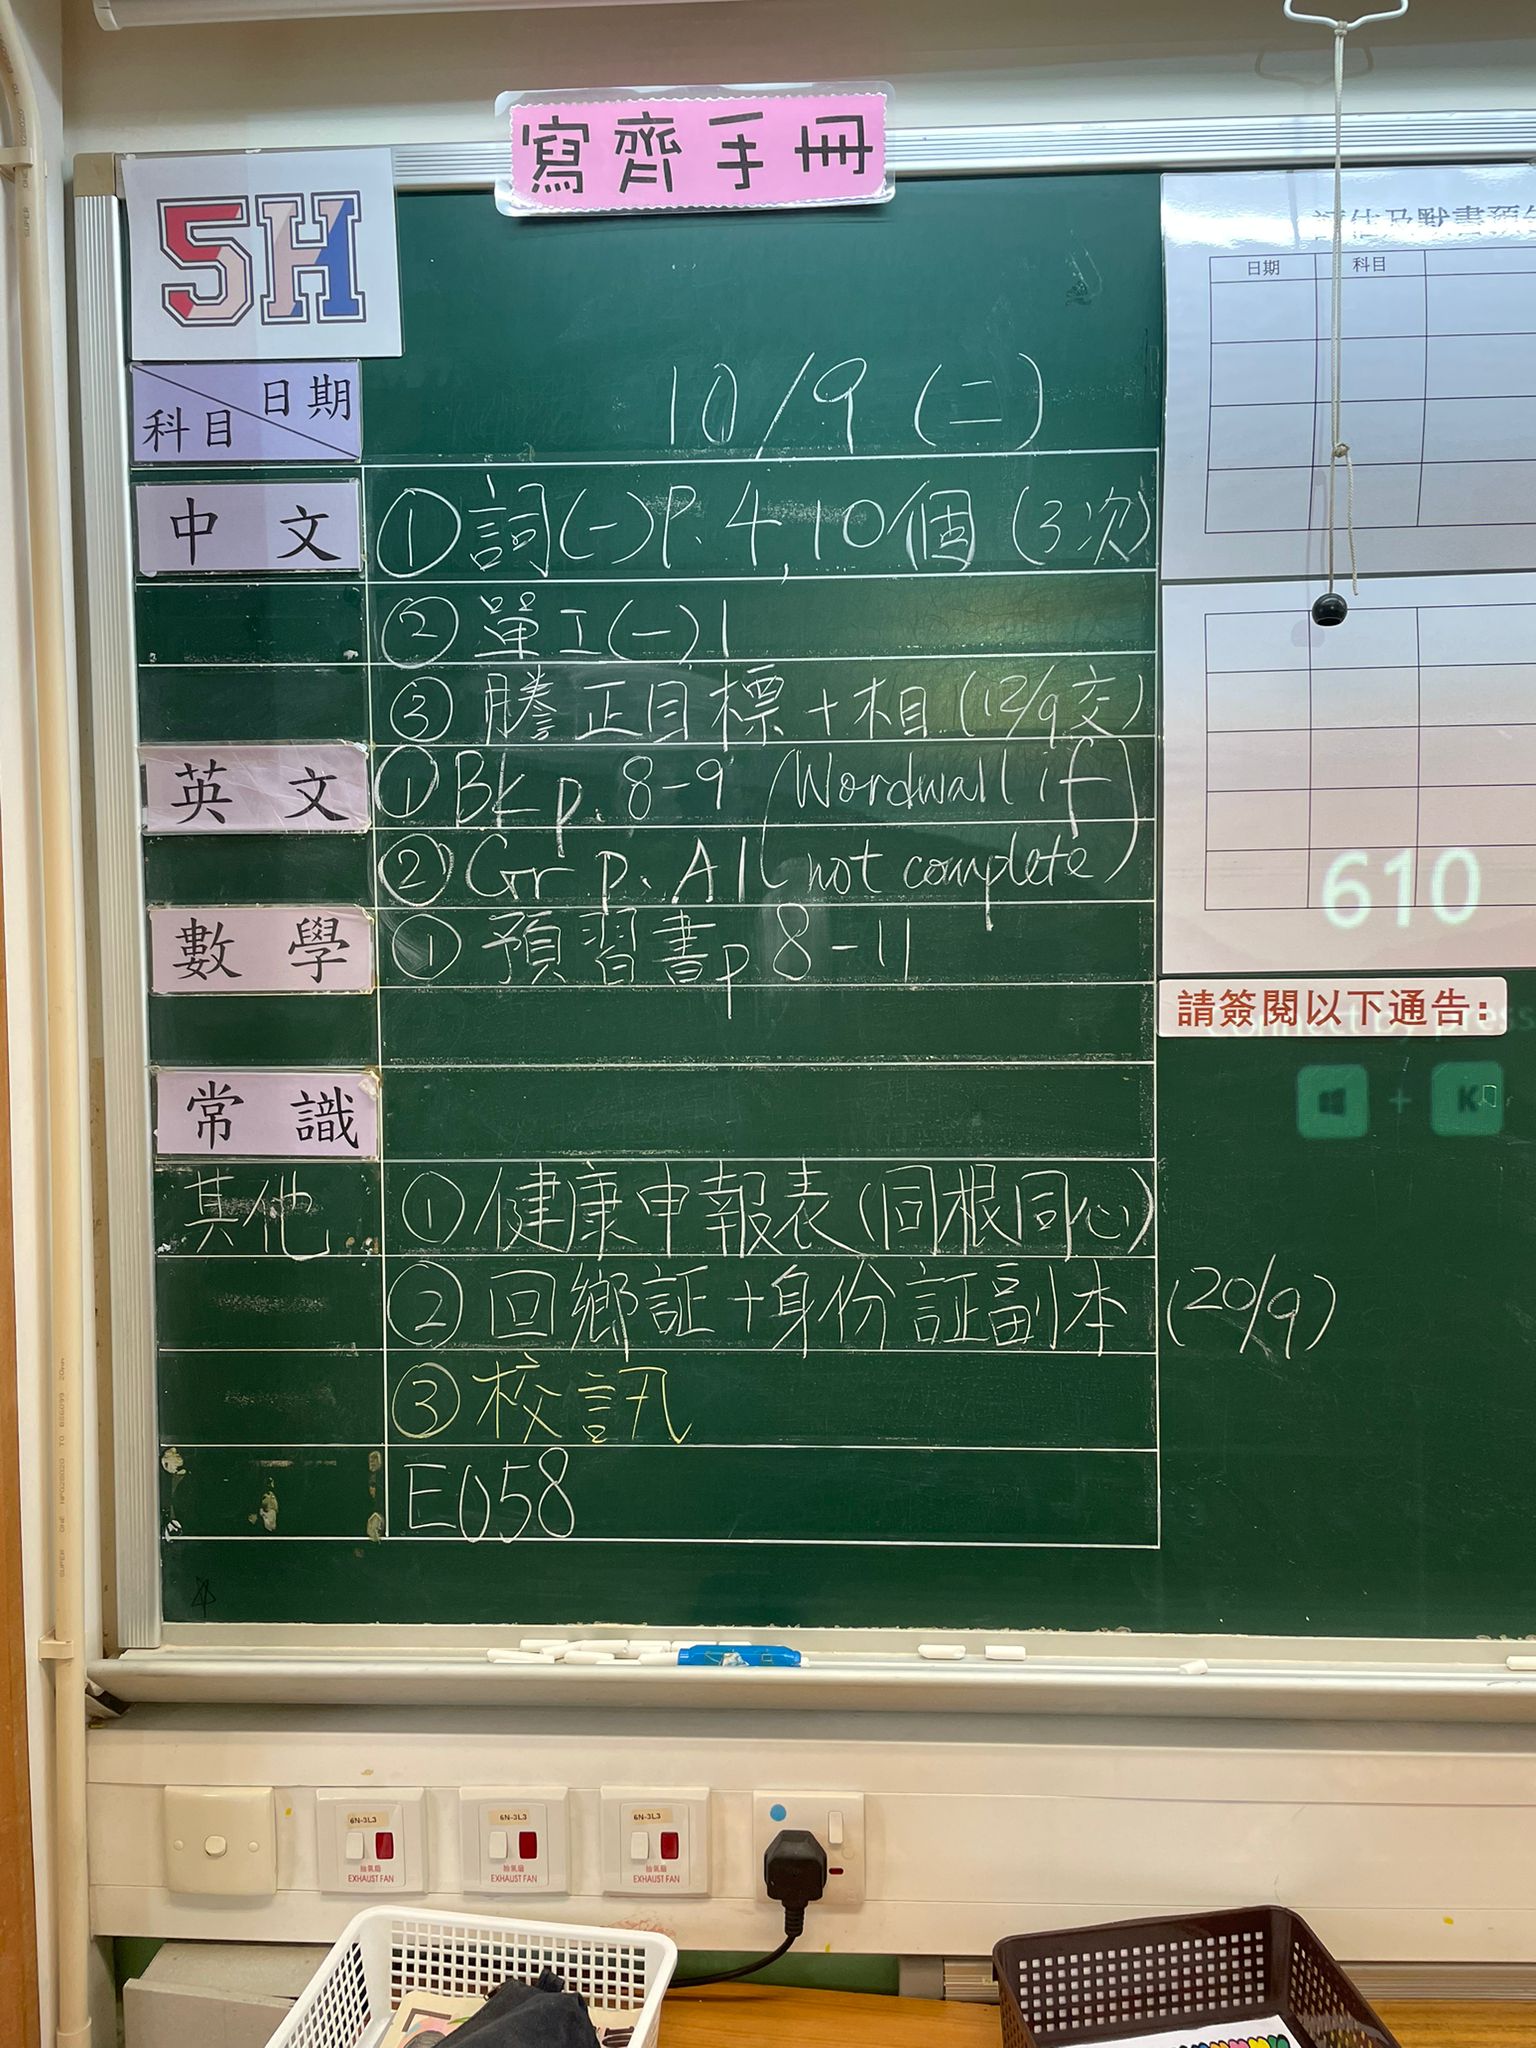 寫齊手冊
5H
日期
科目
10/9 (二)
中文
① 詞(一)P.4, 10個 (3次)
② 單工(一)1
③ 謄正目標+相 (12/9交)
英文
① BK p. 8-9 (Wordwall if
② Gr p. A1 not complete)
數學
① 預習書p 8-11
常識
其他
① 健康申報表(同根同心)
② 回鄉証+身份証副本 (20/9)
③ 校訊
E058
評估及默書預
日期 科目
610
請簽閱以下通告:
Connect by press
+ K
6N-3L3
抽氣扇
EXHAUST FAN
6N-3L3
抽氣扇
EXHAUST FAN
6N-3L3
抽氣扇
EXHAUST FAN